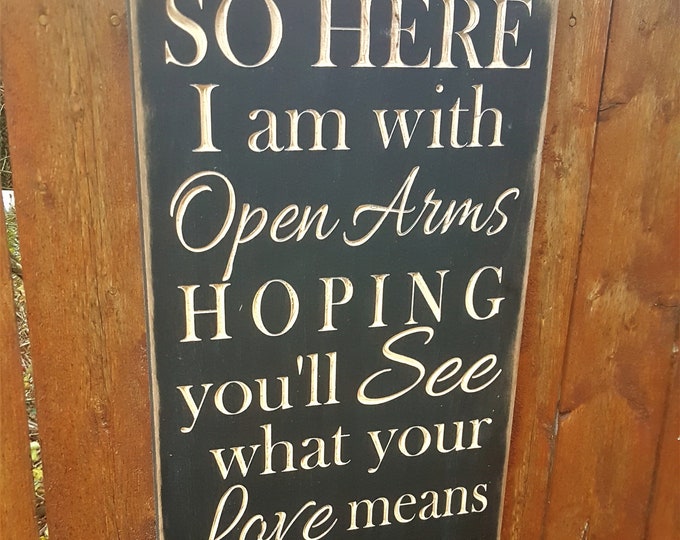 SO HERE
I am with
Open Arms
HOPING
you'll See
what your
love means